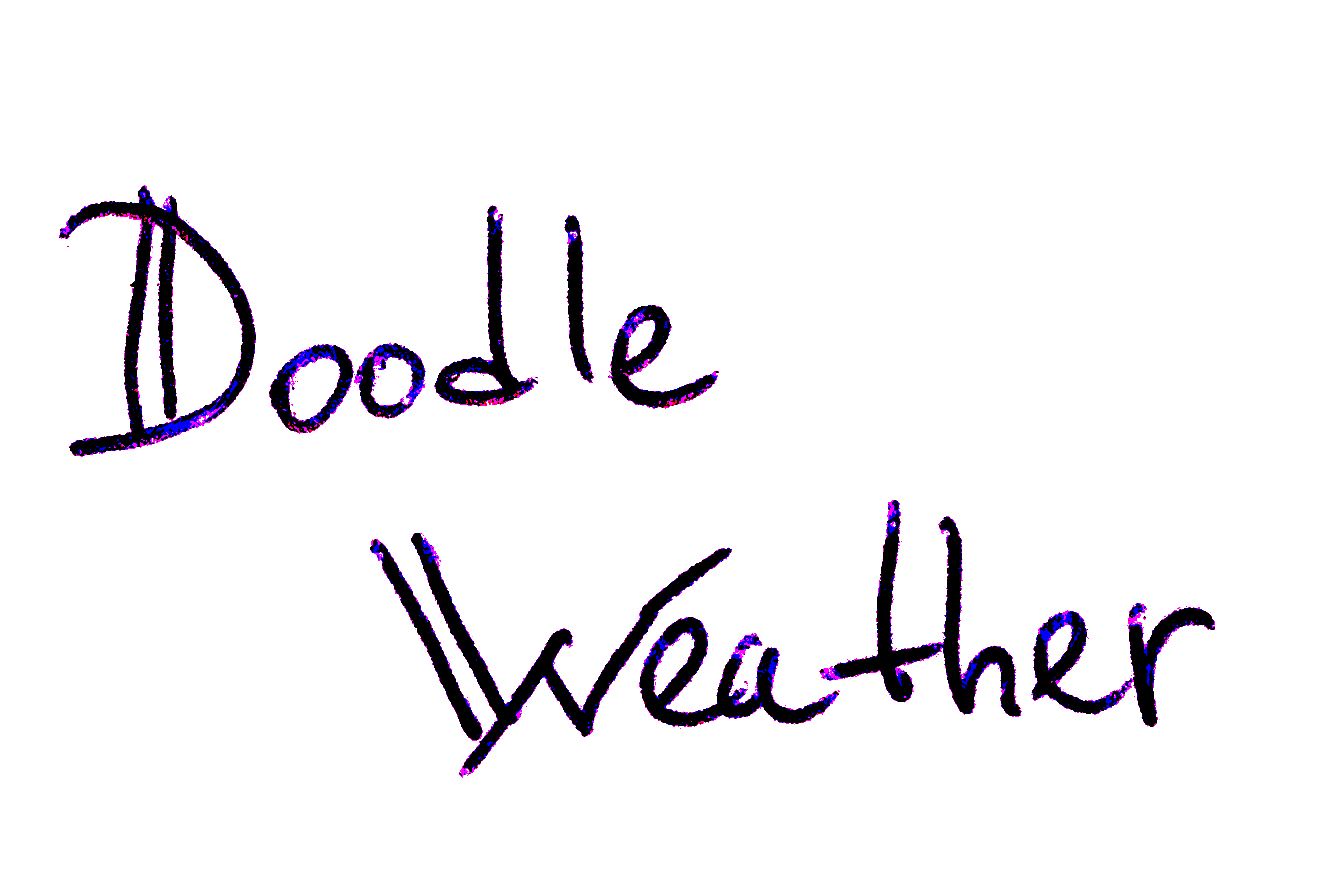 Doodle
Weather